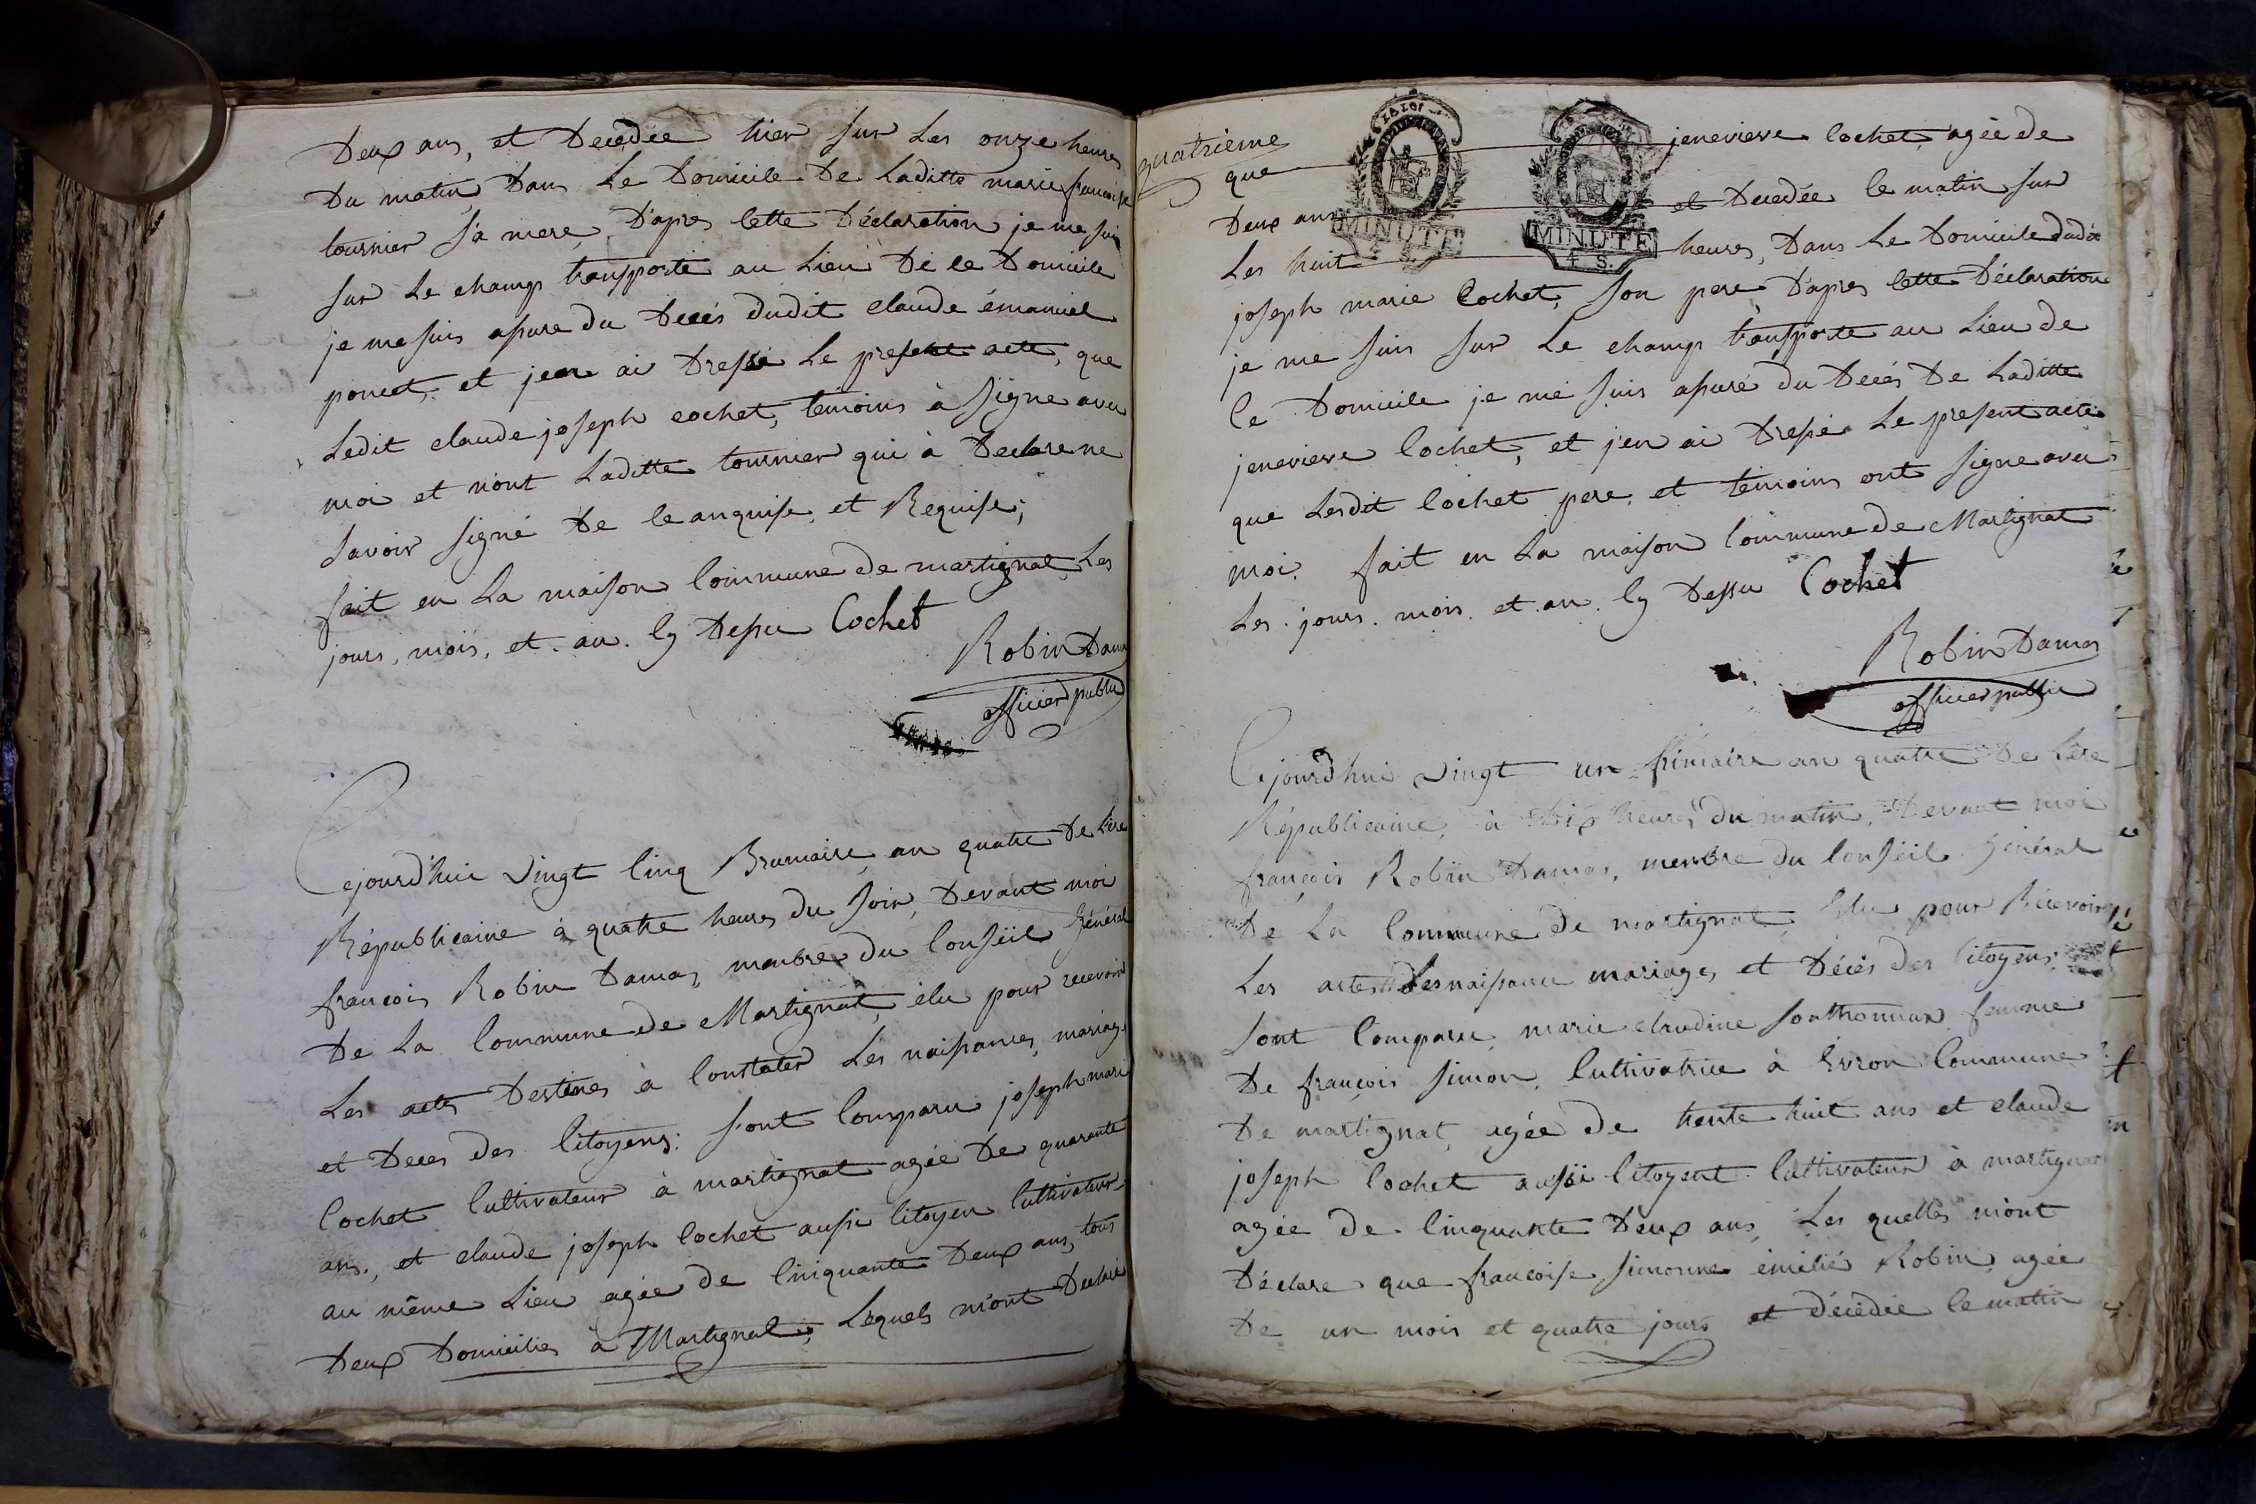 Deux ans, et Decedée hier sur Les onze heures
Du matin Dans Le Domicile De Laditte marie francoise
tournier sa mere, D'apres cette Déclaration je me suis
sur Le champ transporté au Lieu De ce Domicile
je me suis assure du Decés dudit claude émanuel
poncet, et j'en ai Dressé Le present acte, que
Ledit claude joseph cochet, temoins à signe avec
moi et n'ont Laditte tournier qui à Declare ne
savoir signé De ce anquise, et Requise;
fait en La maison Commune de martignat Les
jours, mois, et. an. Cy Dessu Cochet
Robin Damas
officier public
Cejourd'hui Vingt Cinq Brumaire an quatre De L'ere
Républicaine à quatre heures du soir, Devant moi
francois Robin Damas, menbre du Conseil Général
De La Commune de Martignat, élu pour recevoir
Les actes Destines à Constater Les naissances, mariage
et Deces des Citoyens: sont Comparu joseph marie
Cochet Cultivateur à martignat agée De quarante
ans., et claude joseph Cochet aussi Citoyen Cultivateur
au même Lieu agée de Cinquante Deux ans, tous
Deux Domicilies à Martignat, Lequels m'ont Declaré
quatrième
que jenevieve Cochet agée de
Deux ans et Decedée ce matin sur
Les huit heures, Dans Le Domicile dudit
MINUTE
4 S.
MINUTE
4 S.
joseph marie Cochet, son pere D'apres Cette Déclaration
je me suis sur Le champ transporte au Lieu de
Ce Domicile je me suis assuré du Decés De Laditte
jenevieve Cochet, et j'en ai Dressé Le present acte
que Lesdit Cochet pere, et temoins ont signe avec
moi. fait en La maison Commune de Martignat
Les jours. mois. et. an. Cy Dessu Cochet
Robin Damas
officier public
Cejourd'hui Vingt un frimaire an quatre De L'ére
Républicaine, à Dix heures du matin, Devant moi
françois Robin Damas, membre du Conseil Général
De La Commune de martignat Elu pour Recevoir
Les actes Desnaissance mariages et Décés des Citoyens;
sont Comparu marie claudine sonthonnax femme
De françois simon, Cultivatrice à Evron Commune
De martignat agée de trente huit ans et claude
joseph Cochet aussi Citoyent Cultivateur à martignat
agée de Cinquante Deux ans, Les quelles m'ont
Déclare que francoise simonne émélie Robin, agée
De un mois et quatre jours et décédée ce matin